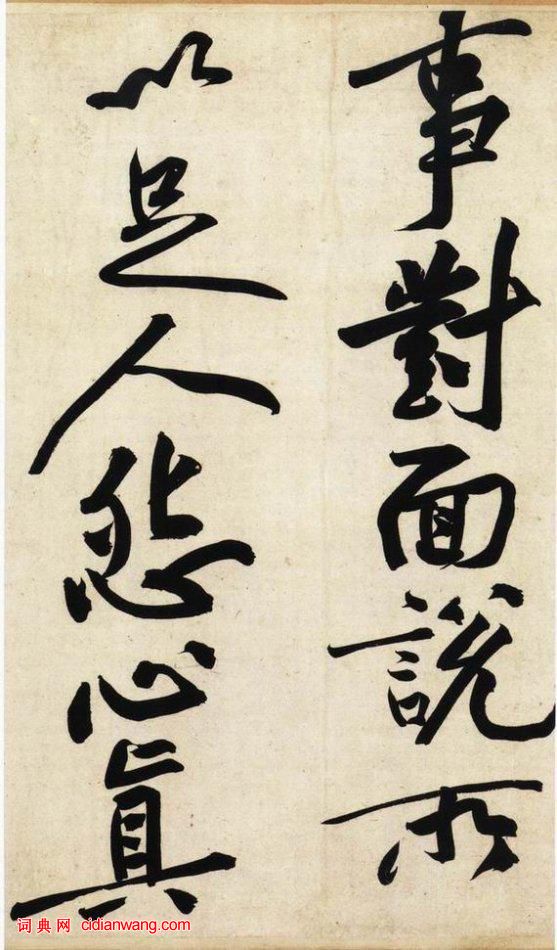 事對面說所
以足人怨心真
词典网 cidianwang.com